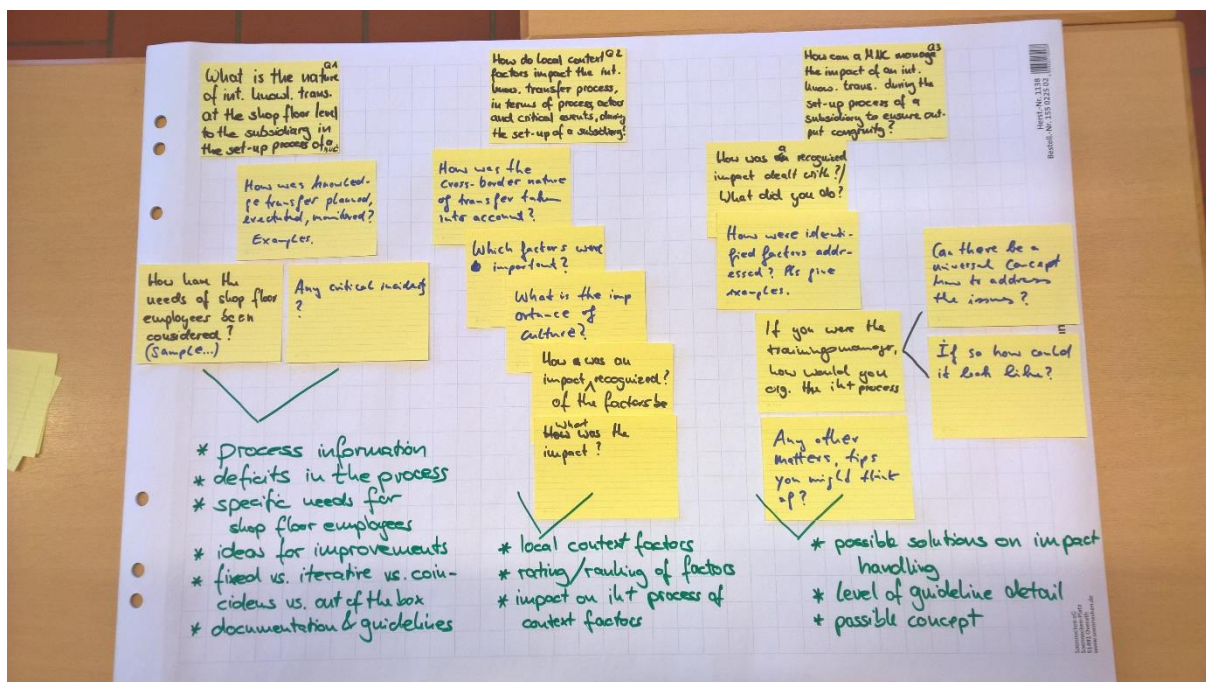 Q1
What is the nature
of int. know. trans.
at the shop floor level
to the subsidiary in
the set-up process of a
MNC
How was knowled-
ge transfer planned,
executed, monitored?
Examples.
How have the
needs of shop floor
employees been
considered?
(Sample...)
Any critical incidents
?
* process information
* deficits in the process
* specific needs for
shop floor employees
* ideas for improvements
* fixed vs. iterative vs. coin-
cidens vs. out of the box
* documentation & guidelines
Q2
How do local context
factors impact the int.
know. transfer process,
in terms of process, actors
and critical events, during
the set-up of a subsidiary?
How was the
cross-border nature
of transfer taken
into account?
Which factors were
important?
What is the imp
ortance of
culture?
How was an
impact recognized?
of the factors be
What
How was the
impact?
* local context factors
* rating/ranking of factors
* impact on ikt process of
context factors
Q3
How can a MNC manage
the impact of an int.
know. trans. during the
set-up process of a
subsidiary to ensure out-
put congruity?
How was a recognized
impact dealt with?/
What did you do?
How were identi-
fied factors addr-
essed? Pls give
examples.
If you were the
trainingsmanager,
how would you
org. the ikt process
Can there be a
universal concept
how to address
the issues?
If so how could
it look like?
Any other
matters, tips
you might think
of?
* possible solutions on impact
handling
* level of guideline detail
* possible concept
Herst.-Nr. 1138
Bestell.-Nr. 155 0225 02